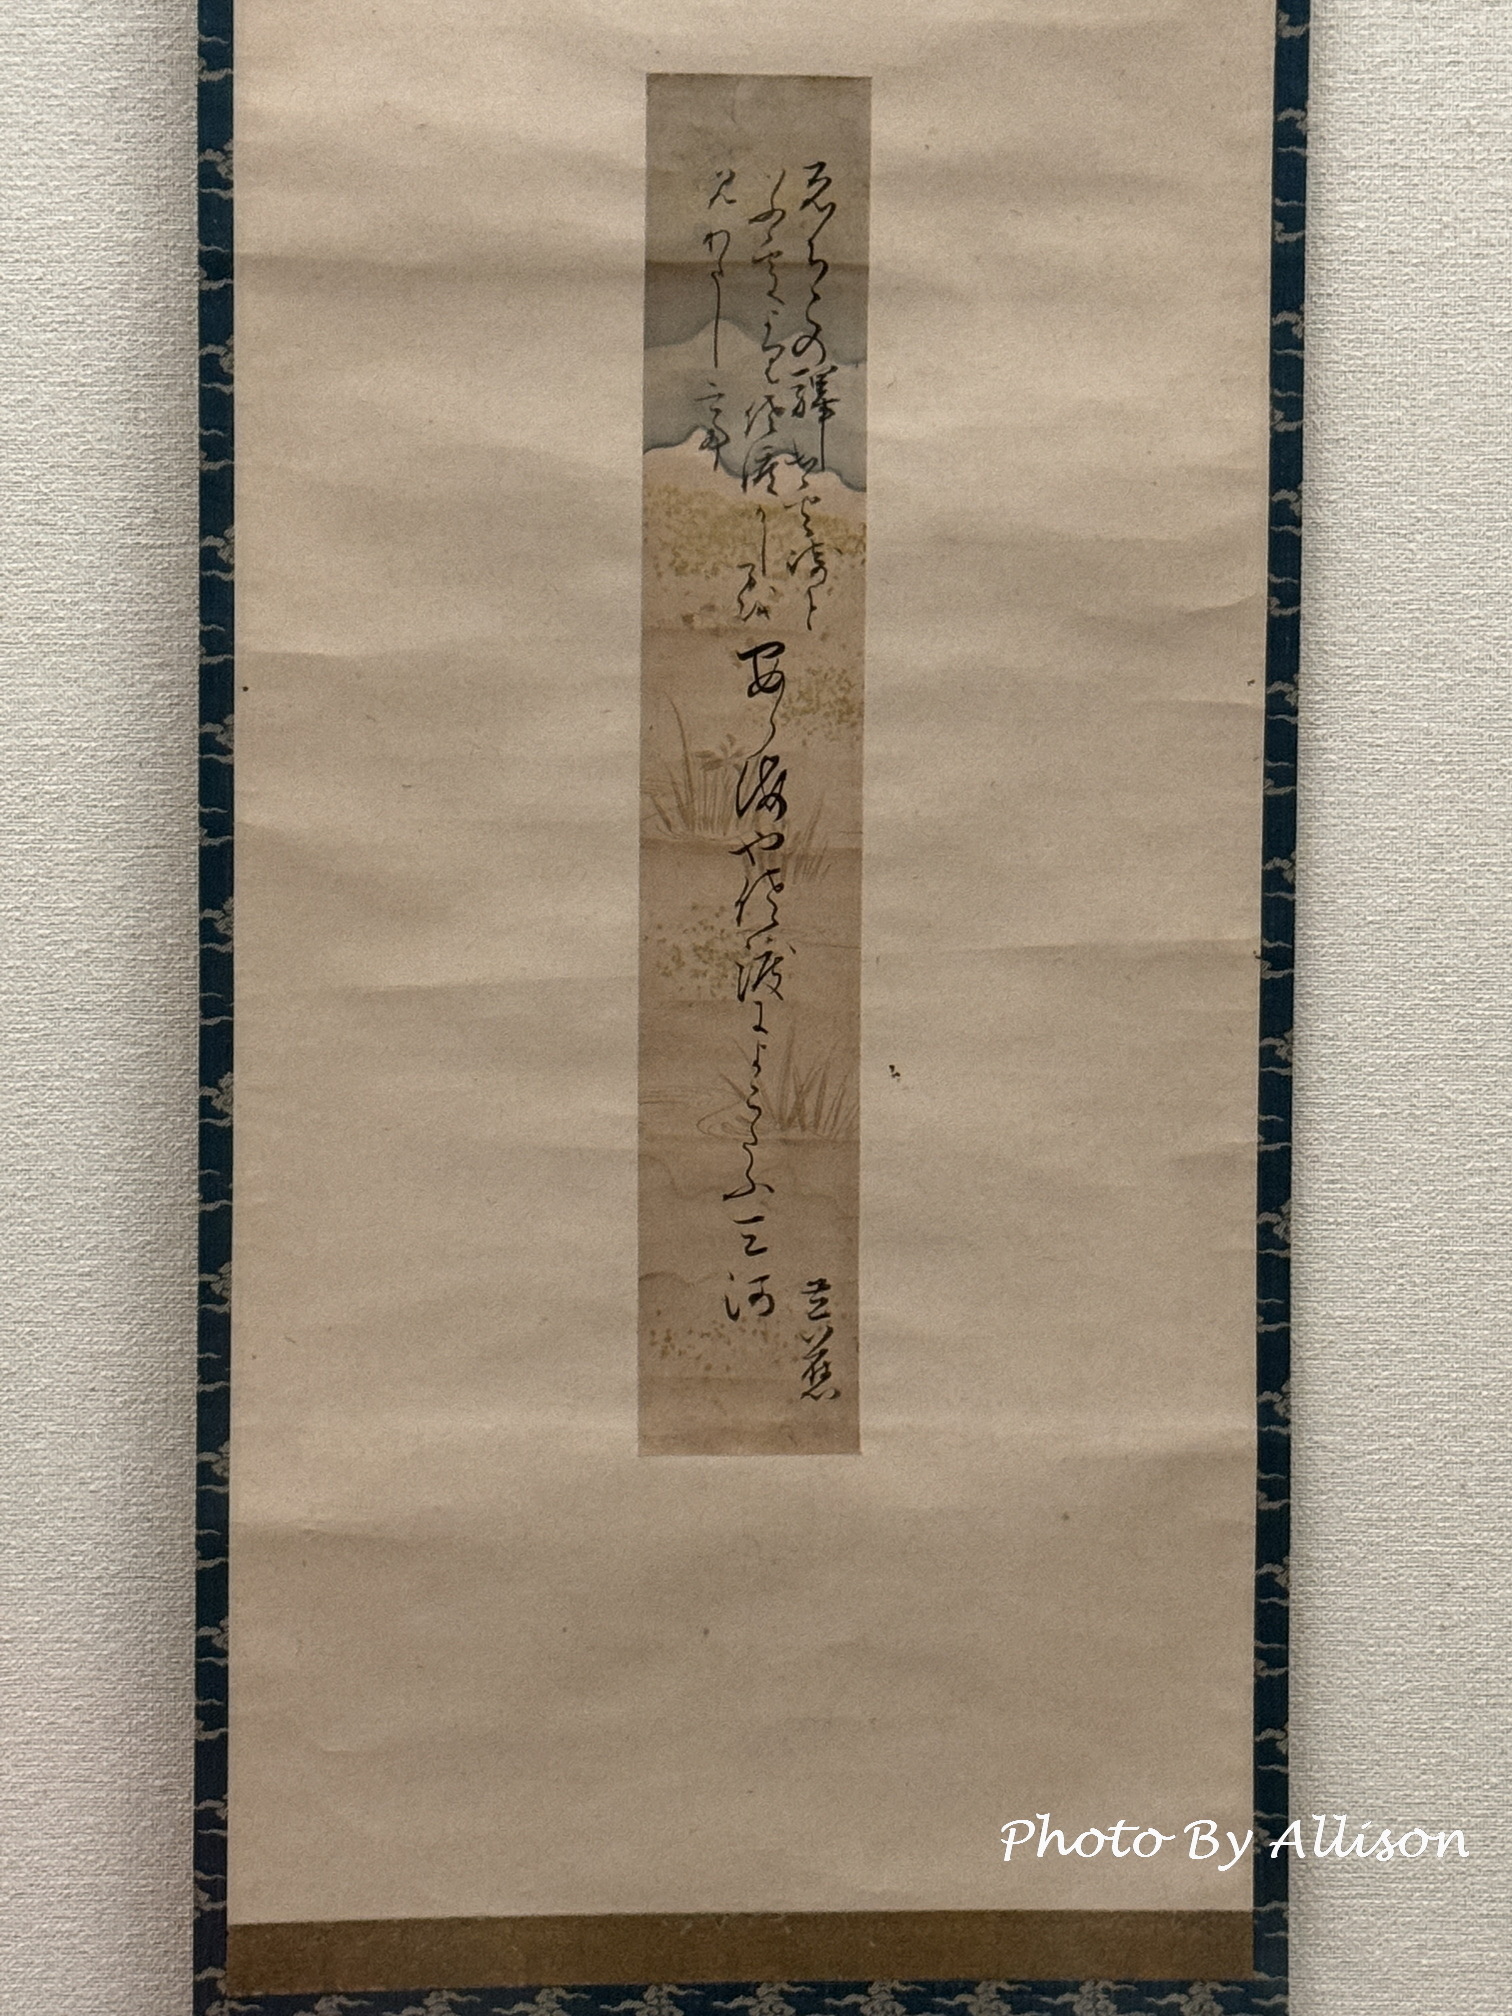 ゑちこの驛出雲崎と
いふ處より佐渡かしまを
見わたして
あら海や佐渡によこたふ天河
芭蕉
Photo By Allison